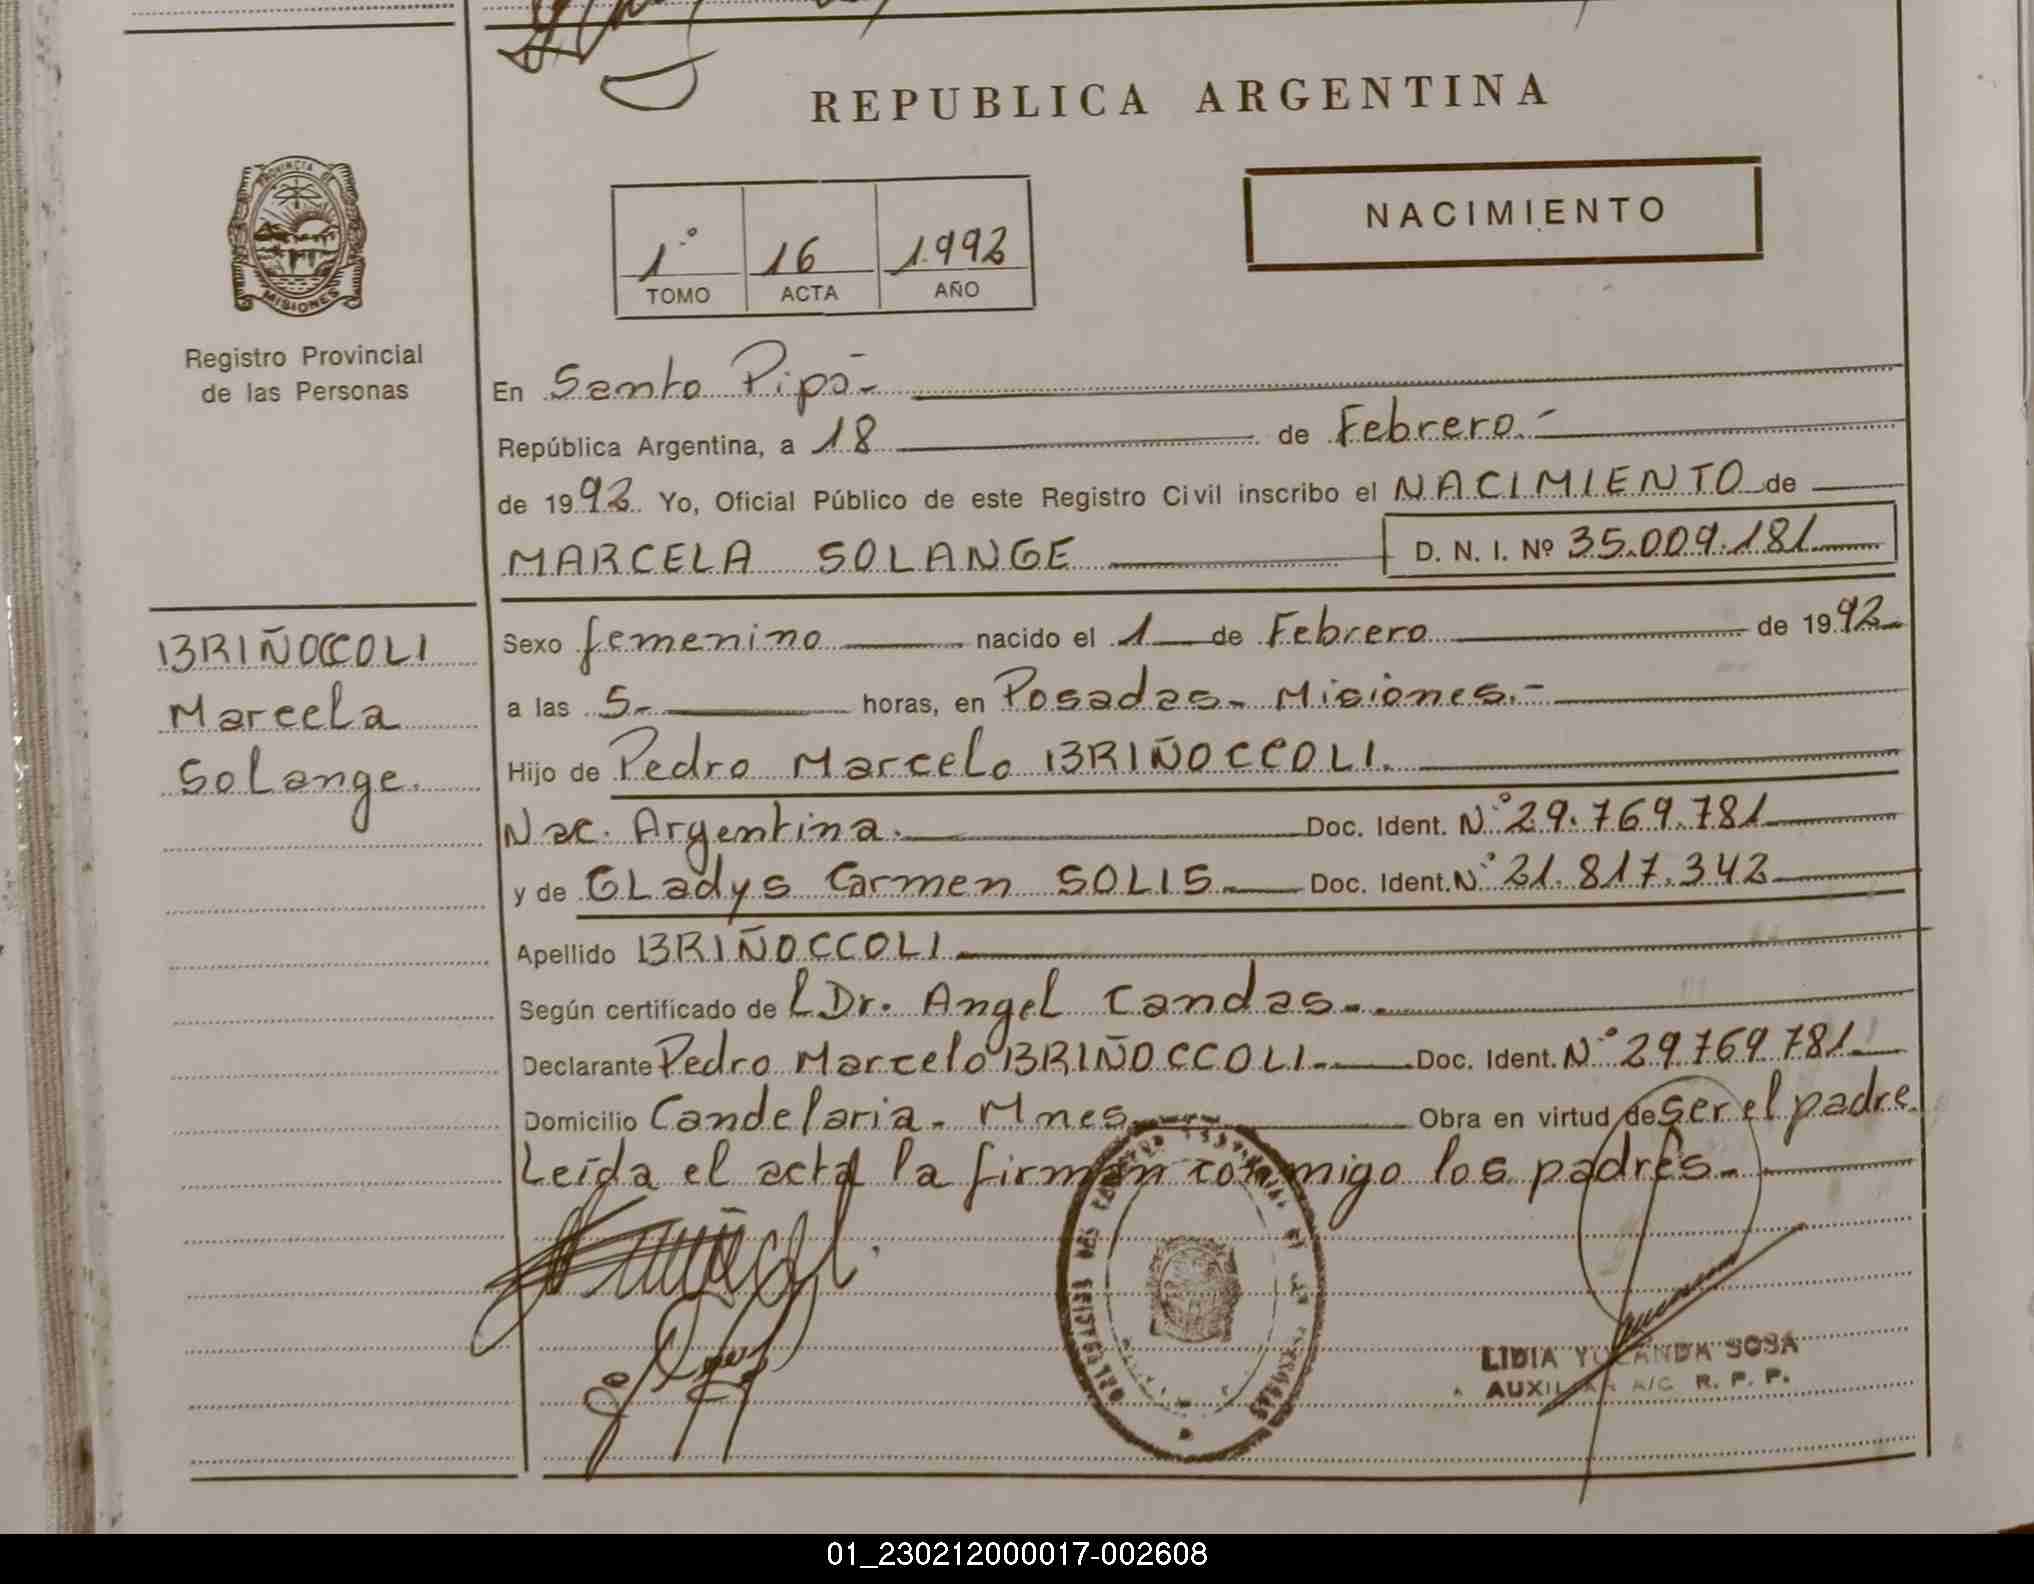 REPUBLICA ARGENTINA
PROVINCIA DE
MISIONES
Registro Provincial
de las Personas
1º 16 1992
TOMO ACTA AÑO
NACIMIENTO
En Santo Pipó.-
República Argentina, a 18 de Febrero.-
de 1992 Yo, Oficial Público de este Registro Civil inscribo el NACIMIENTO de
MARCELA SOLANGE D. N. I. Nº 35.009.181
BRIÑOCCOLI
Marcela
Solange.
Sexo femenino nacido el 1 de Febrero de 1992
a las 5.- horas, en Posadas- Misiones.-
Hijo de Pedro Marcelo BRIÑOCCOLI.
Nac. Argentina. Doc. Ident. Nº 29.769.781
y de GLadys Carmen SOLIS Doc. Ident. Nº 21.817.342
Apellido BRIÑOCCOLI
Según certificado de l Dr. Angel Candas-.
Declarante Pedro Marcelo BRIÑOCCOLI.- Doc. Ident. Nº 29.769.781
Domicilio Candelaria- Mnes. Obra en virtud de ser el padre.
Leída el acta la firman conmigo los padres-.
LIDIA YOLANDA SOSA
AUXILIAR A/C R. P. P.
01_230212000017-002608